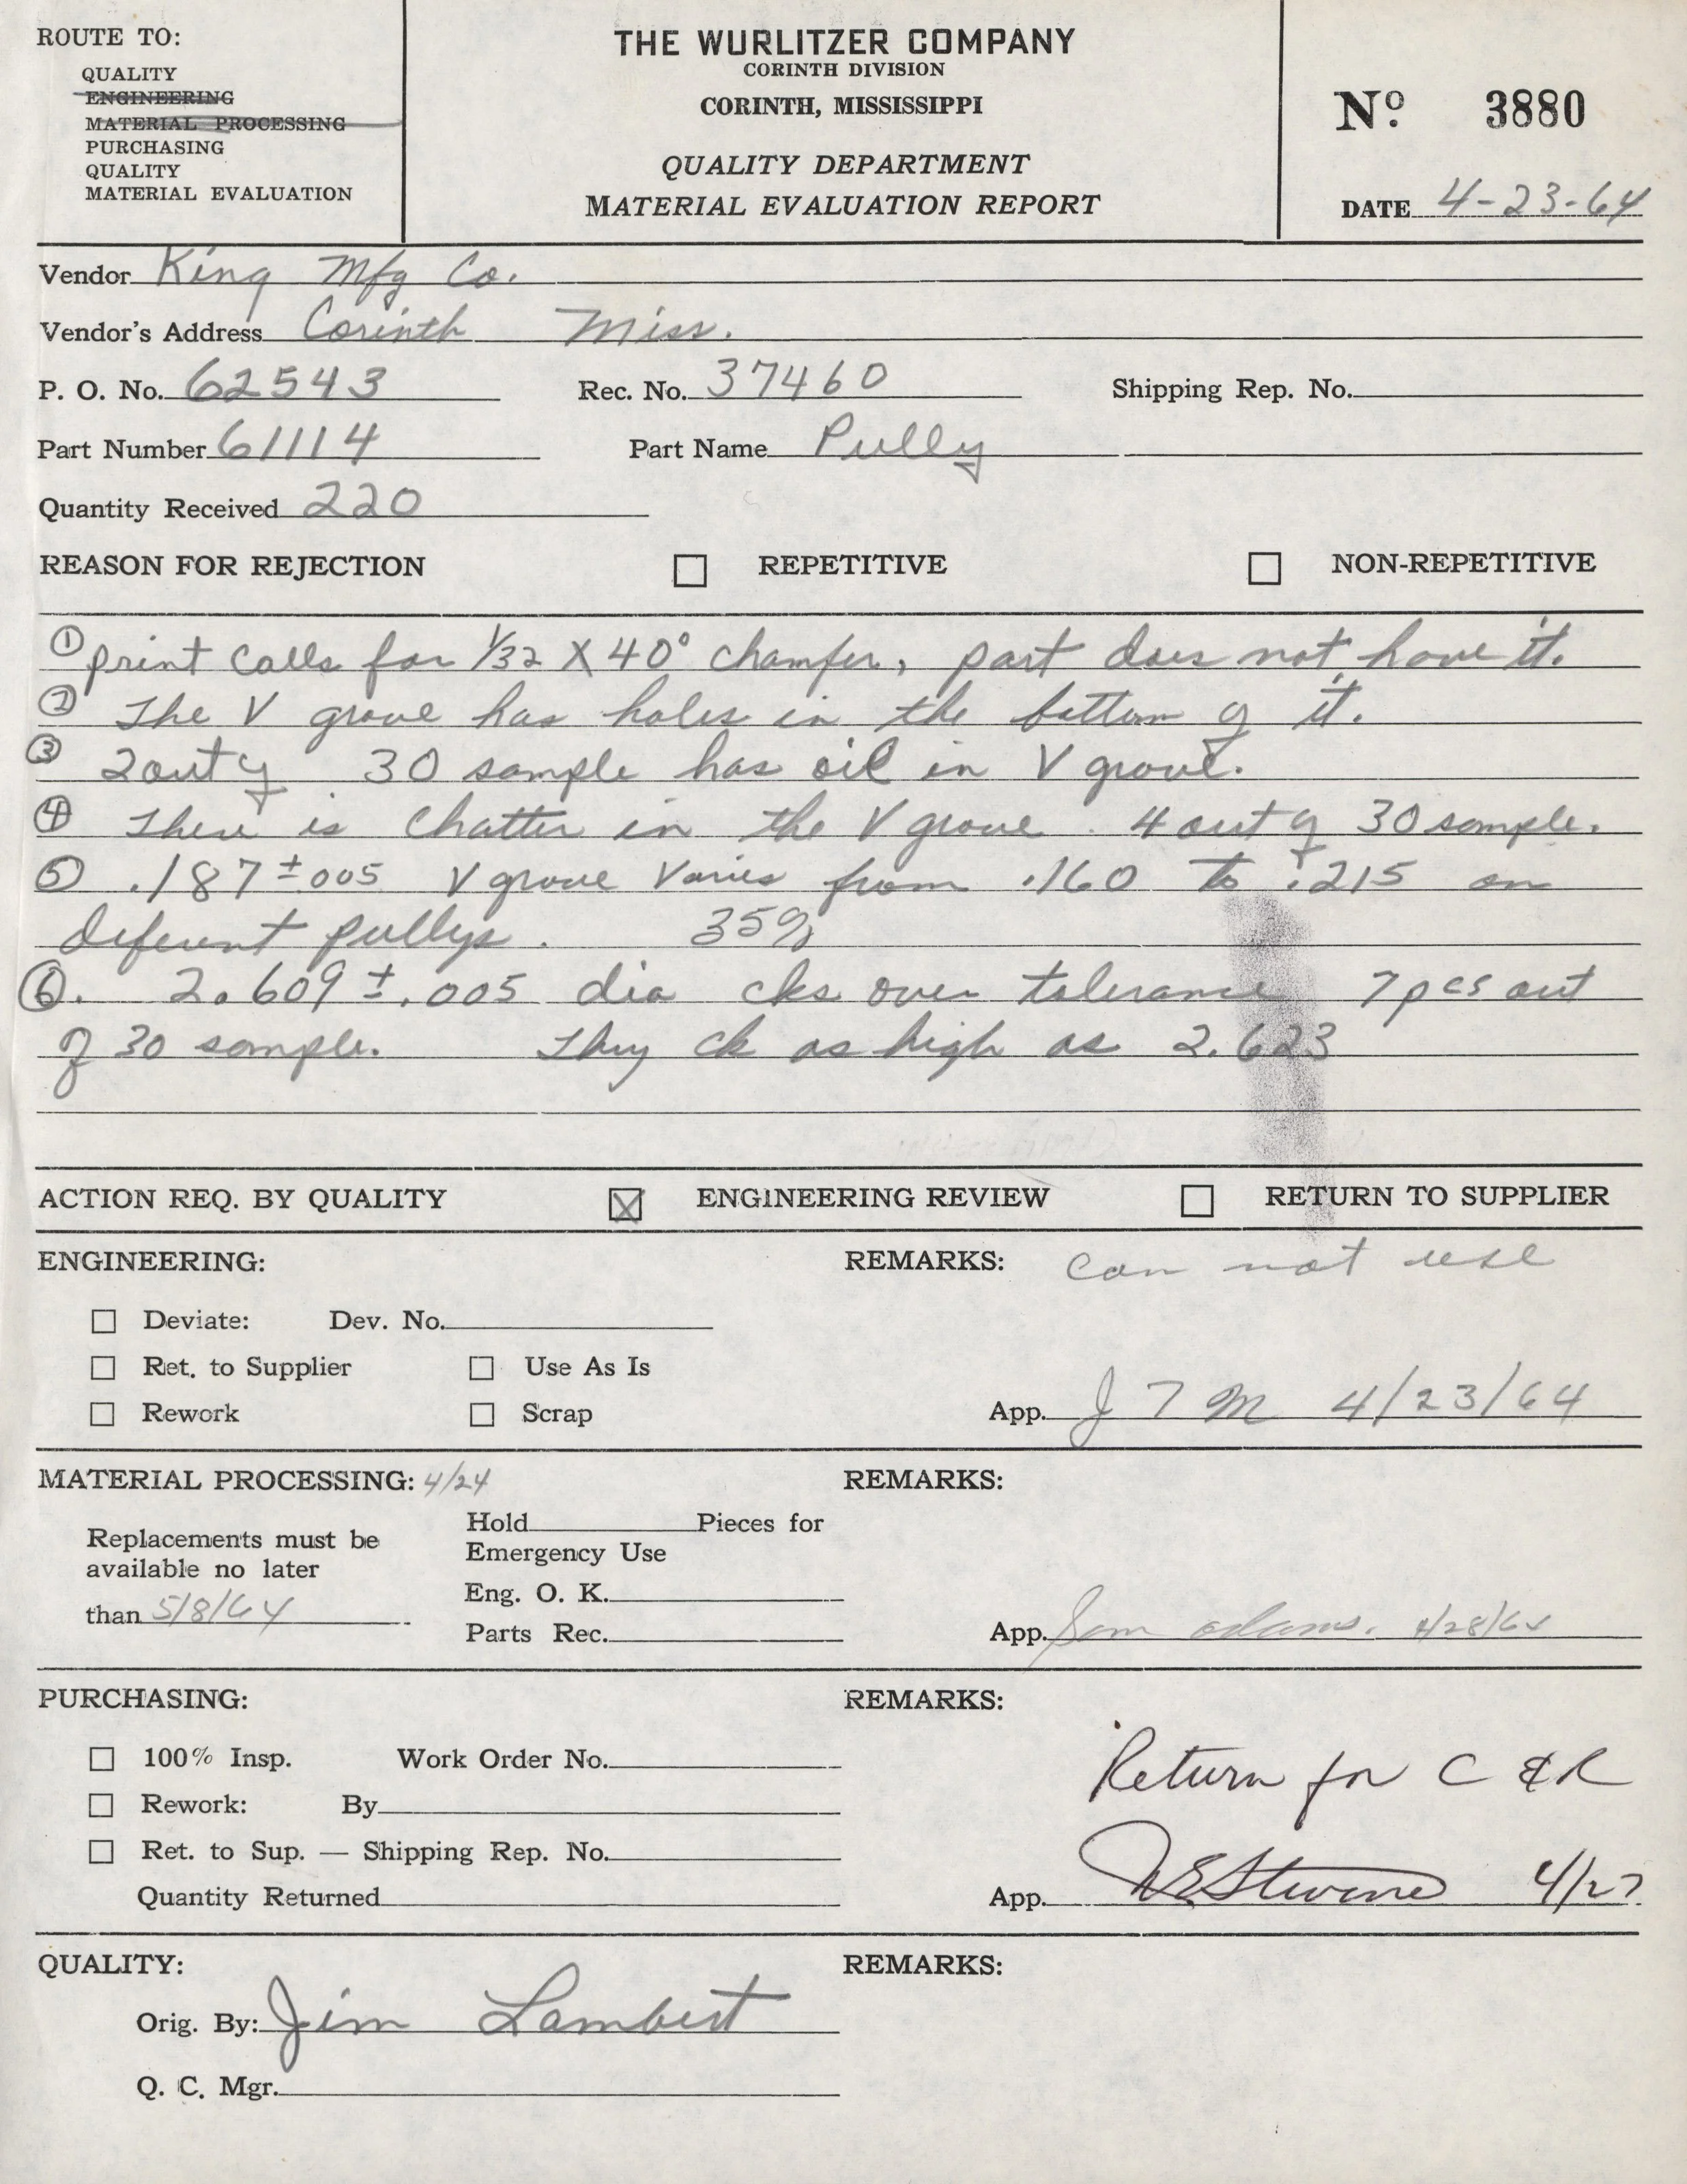 ROUTE TO:
QUALITY
ENGINEERING
MATERIAL PROCESSING
PURCHASING
QUALITY
MATERIAL EVALUATION
THE WURLITZER COMPANY
CORINTH DIVISION
CORINTH, MISSISSIPPI
QUALITY DEPARTMENT
MATERIAL EVALUATION REPORT
Nº 3880
DATE 4-23-64
Vendor King Mfg Co.
Vendor's Address Corinth Miss.
P. O. No. 62543 Rec. No. 37460 Shipping Rep. No.
Part Number 61114 Part Name Pully
Quantity Received 220
REASON FOR REJECTION ☐ REPETITIVE ☐ NON-REPETITIVE
① print calls for 1/32 X 40° chamfer, part does not have it.
② The V grove has holes in the bottom of it.
③ 2 out of 30 sample has oil in V grove.
④ There is chatter in the V grove. 4 out of 30 sample.
⑤ .187 ± 005 V grove varies from .160 to .215 on
diferent pullys. 35%
⑥. 2.609 ± .005 dia cks over tolerance 7 pcs out
of 30 sample. They ck as high as 2.623
ACTION REQ. BY QUALITY ☒ ENGINEERING REVIEW ☐ RETURN TO SUPPLIER
ENGINEERING: REMARKS: can not use
☐ Deviate: Dev. No.
☐ Ret. to Supplier ☐ Use As Is
☐ Rework ☐ Scrap App. J T M 4/23/64
MATERIAL PROCESSING: 4/24 REMARKS:
Replacements must be
available no later
than 5/8/64
Hold Pieces for
Emergency Use
Eng. O. K.
Parts Rec.
App. Sam Adams. 4/28/64
PURCHASING: REMARKS:
☐ 100% Insp. Work Order No.
Return for C & R
☐ Rework: By
☐ Ret. to Sup. — Shipping Rep. No.
Quantity Returned App. Stevens 4/27
QUALITY: REMARKS:
Orig. By: Jim Lambert
Q. C. Mgr.